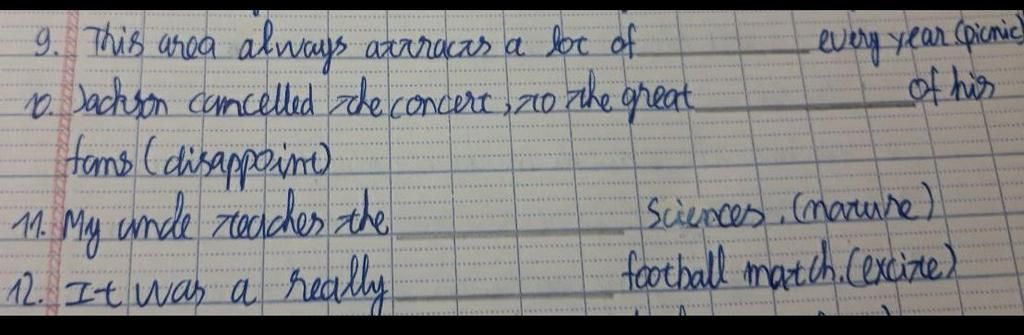 9. This area always attracts a lot of ______ every year (picnic)
10. Jackson cancelled the concert, to the great ______ of his
fans (disappoint)
11. My uncle teaches the ______ Sciences. (nature)
12. It was a really ______ football match. (excite)